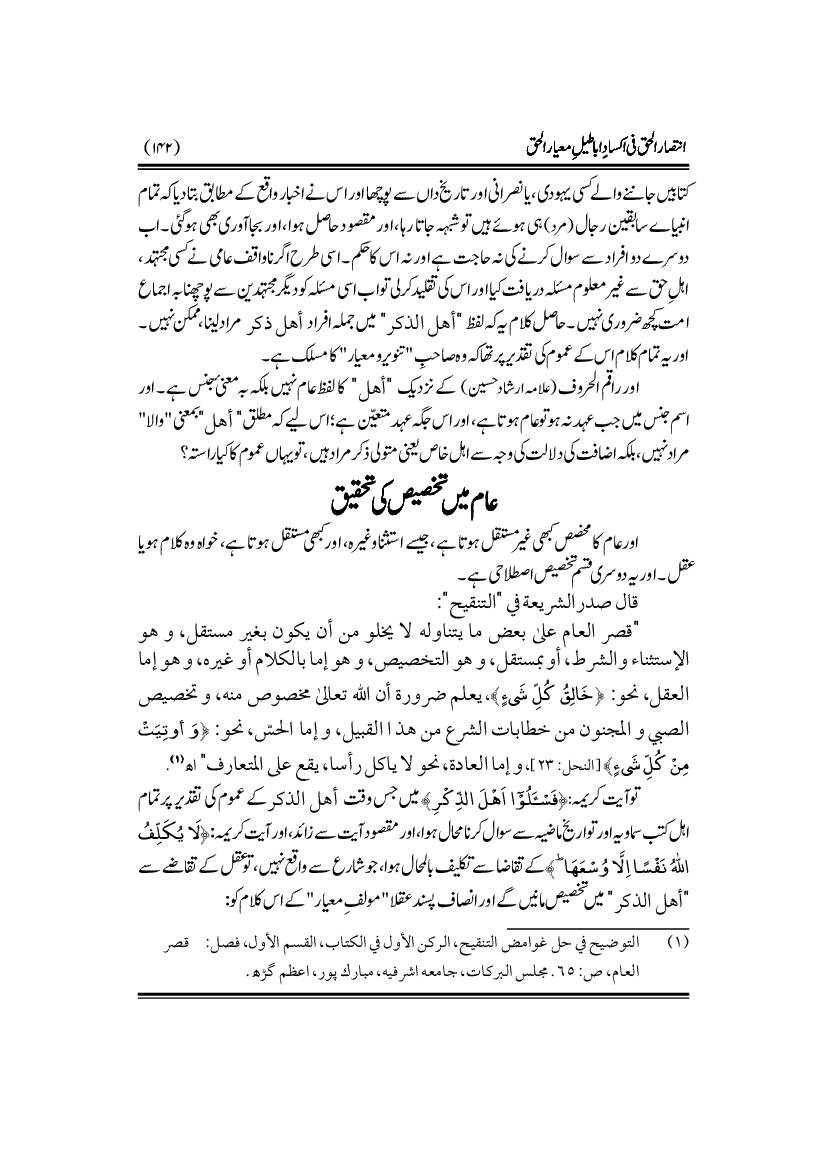 انتصار الحق فی اکساد اباطیلِ معیار الحق
(۱۴۲)
کتابیں جاننے والے کسی یہودی، یا نصرانی اور تاریخ داں سے پوچھا اور اس نے اخبار واقع کے مطابق بتادیا کہ تمام
انبیاے سابقین رجال (مرد) ہی ہوئے ہیں تو شبہہ جاتا رہا، اور مقصود حاصل ہوا، اور بجا آوری بھی ہو گئی۔ اب
دوسرے دو افراد سے سوال کرنے کی نہ حاجت ہے اور نہ اس کا حکم۔ اسی طرح اگر ناواقف عامی نے کسی مجتہد،
اہلِ حق سے غیر معلوم مسئلہ دریافت کیا اور اس کی تقلید کر لی تو اب اسی مسئلہ کو دیگر مجتہدین سے پوچھنا بہ اجماع
امت کچھ ضروری نہیں۔ حاصل کلام یہ کہ لفظ "أهل الذكر" میں جملہ افراد أهل ذكر مراد لینا، ممکن نہیں۔
اور یہ تمام کلام اس کے عموم کی تقدیر پر تھا کہ وہ صاحبِ "تنویر و معیار" کا مسلک ہے۔
اور راقم الحروف (علامہ ارشاد حسین) کے نزدیک "أهل" کا لفظ عام نہیں بلکہ بہ معنیٔ جنس ہے۔ اور
اسم جنس میں جب عہد نہ ہو تو عام ہوتا ہے، اور اس جگہ عہد متعیّن ہے؛ اس لیے کہ مطلق "أهل" بمعنی "والا"
مراد نہیں، بلکہ اضافت کی دلالت کی وجہ سے اہل خاص یعنی متولی ذکر مراد ہیں، تو یہاں عموم کا کیا راستہ؟
عام میں تخصیص کی تحقیق
اور عام کا مخصص کبھی غیر مستقل ہوتا ہے، جیسے استثنا وغیرہ، اور کبھی مستقل ہوتا ہے، خواہ وہ کلام ہو یا
عقل۔ اور یہ دوسری قسم تخصیص اصطلاحی ہے۔
قال صدر الشريعة في "التنقيح":
"قصر العام علىٰ بعض ما يتناوله لا يخلو من أن يكون بغير مستقل، و هو
الإستثناء و الشرط، أو بمستقل، و هو التخصيص، و هو إما بالكلام أو غيره، و هو إما
العقل، نحو: ﴿خَالِقُ كُلِّ شَیءٍ﴾، يعلم ضرورة أن الله تعالىٰ مخصوص منه، و تخصيص
الصبي و المجنون من خطابات الشرع من هذا القبيل، و إما الحسّ، نحو: ﴿وَ أوتِيَتْ
مِنْ كُلِّ شَیءٍ﴾ [النحل: ٢٣]، و إما العادة، نحو لا ياكل رأسا، يقع على المتعارف" اھ(۱).
تو آیت کریمہ: ﴿فَسْـَٔلُوْۤا اَهْلَ الذِّكْرِ﴾ میں جس وقت أهل الذكر کے عموم کی تقدیر پر تمام
اہل کتب سماویہ اور تواریخ ماضیہ سے سوال کرنا محال ہوا، اور مقصود آیت سے زائد، اور آیت کریمہ: ﴿لَا يُكَلِّفُ
اللهُ نَفْسًا اِلَّا وُسْعَهَا ؕ﴾ کے تقاضا سے تکلیف بالمحال ہوا، جو شارع سے واقع نہیں، تو عقل کے تقاضے سے
"أهل الذكر" میں تخصیص مانیں گے اور انصاف پسند عقلا "مولفِ معیار" کے اس کلام کو:
(١) التوضيح في حل غوامض التنقيح، الركن الأول في الكتاب، القسم الأول، فصل: قصر
العام، ص: ٦٥. مجلس البركات، جامعه اشرفيه، مبارك پور، اعظم گڑھ.